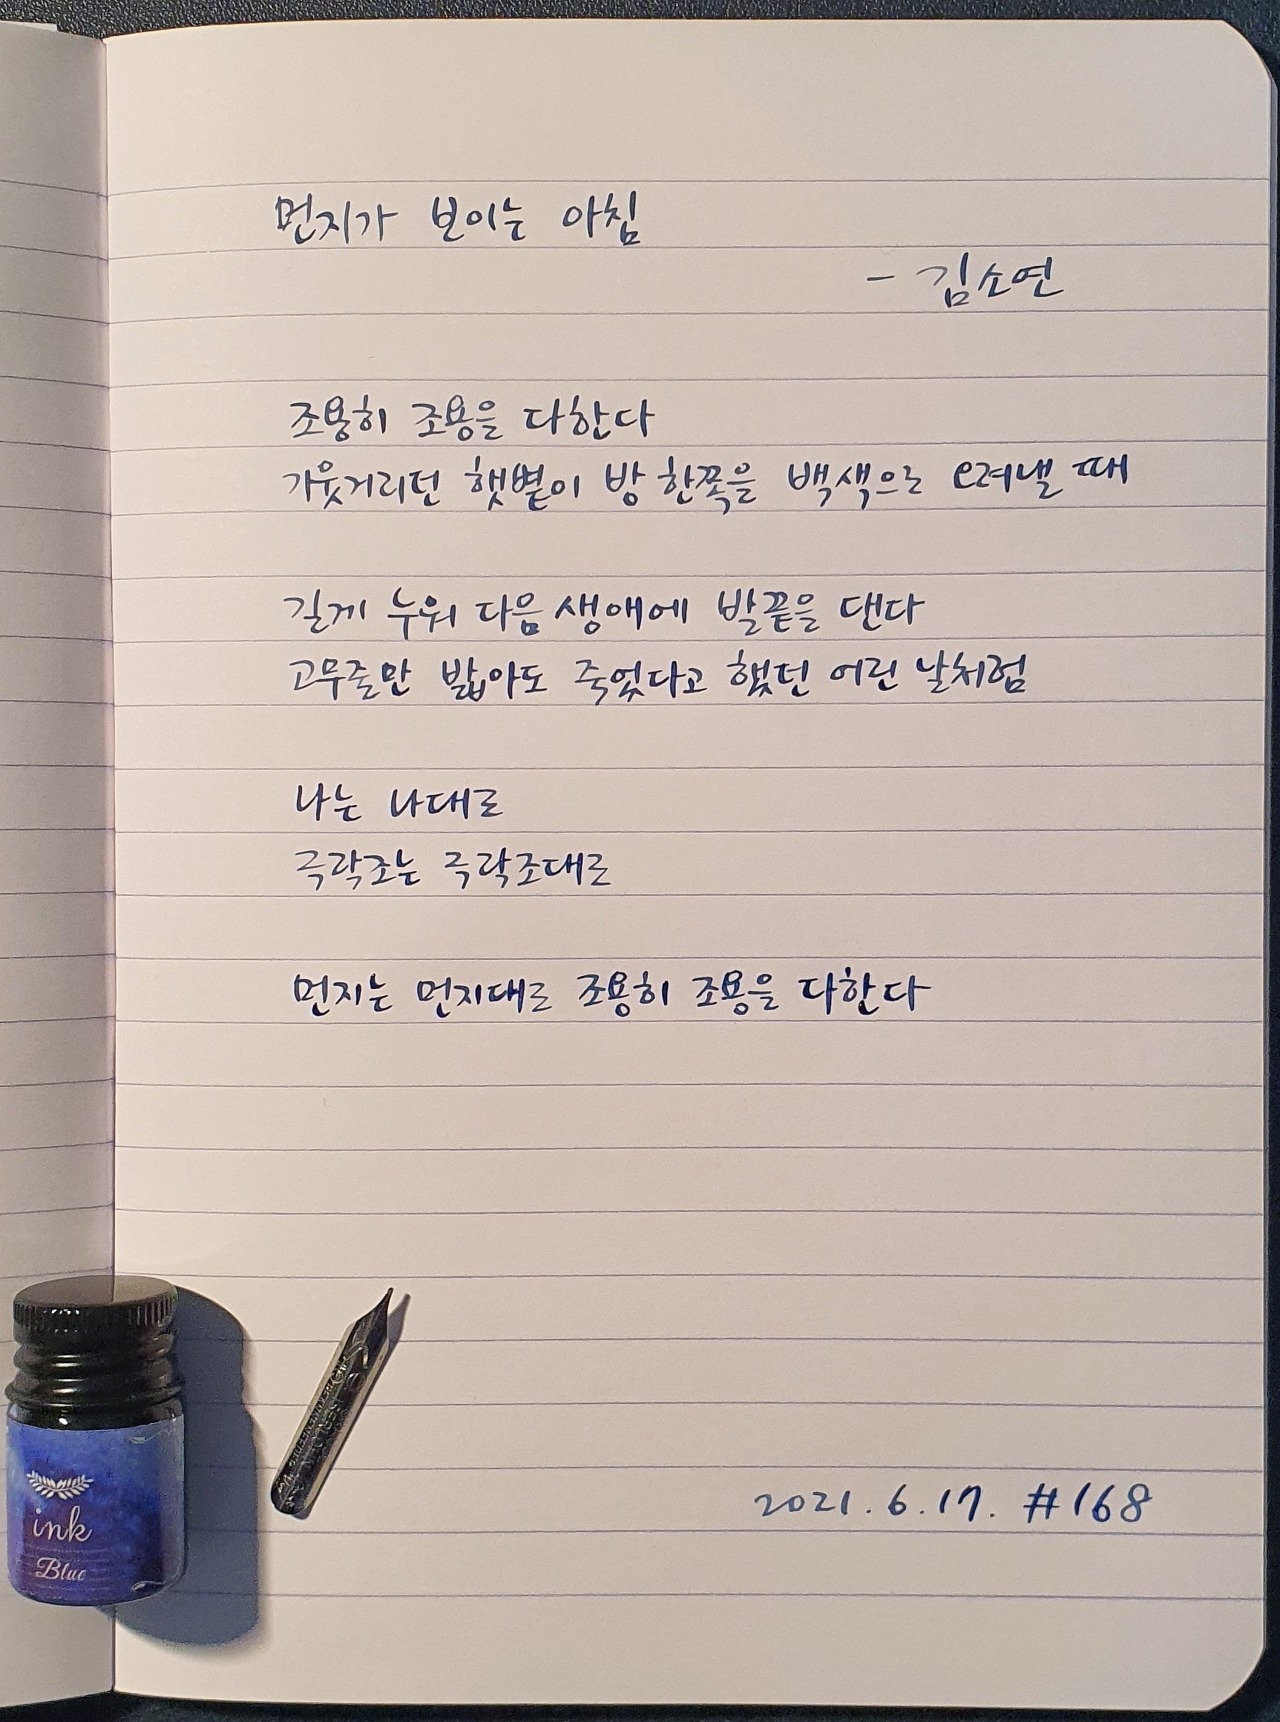 먼지가 보이는 아침
- 김소연
조용히 조용을 다한다
기웃거리던 햇볕이 방 한쪽을 백색으로 오려낼 때
길게 누워 다음 생애에 발끝을 댄다
고무줄만 밟아도 죽었다고 했던 어린 날처럼
나는 나대로
극락조는 극락조대로
먼지는 먼지대로 조용히 조용을 다한다
2021. 6. 17. #168
ink
Blue